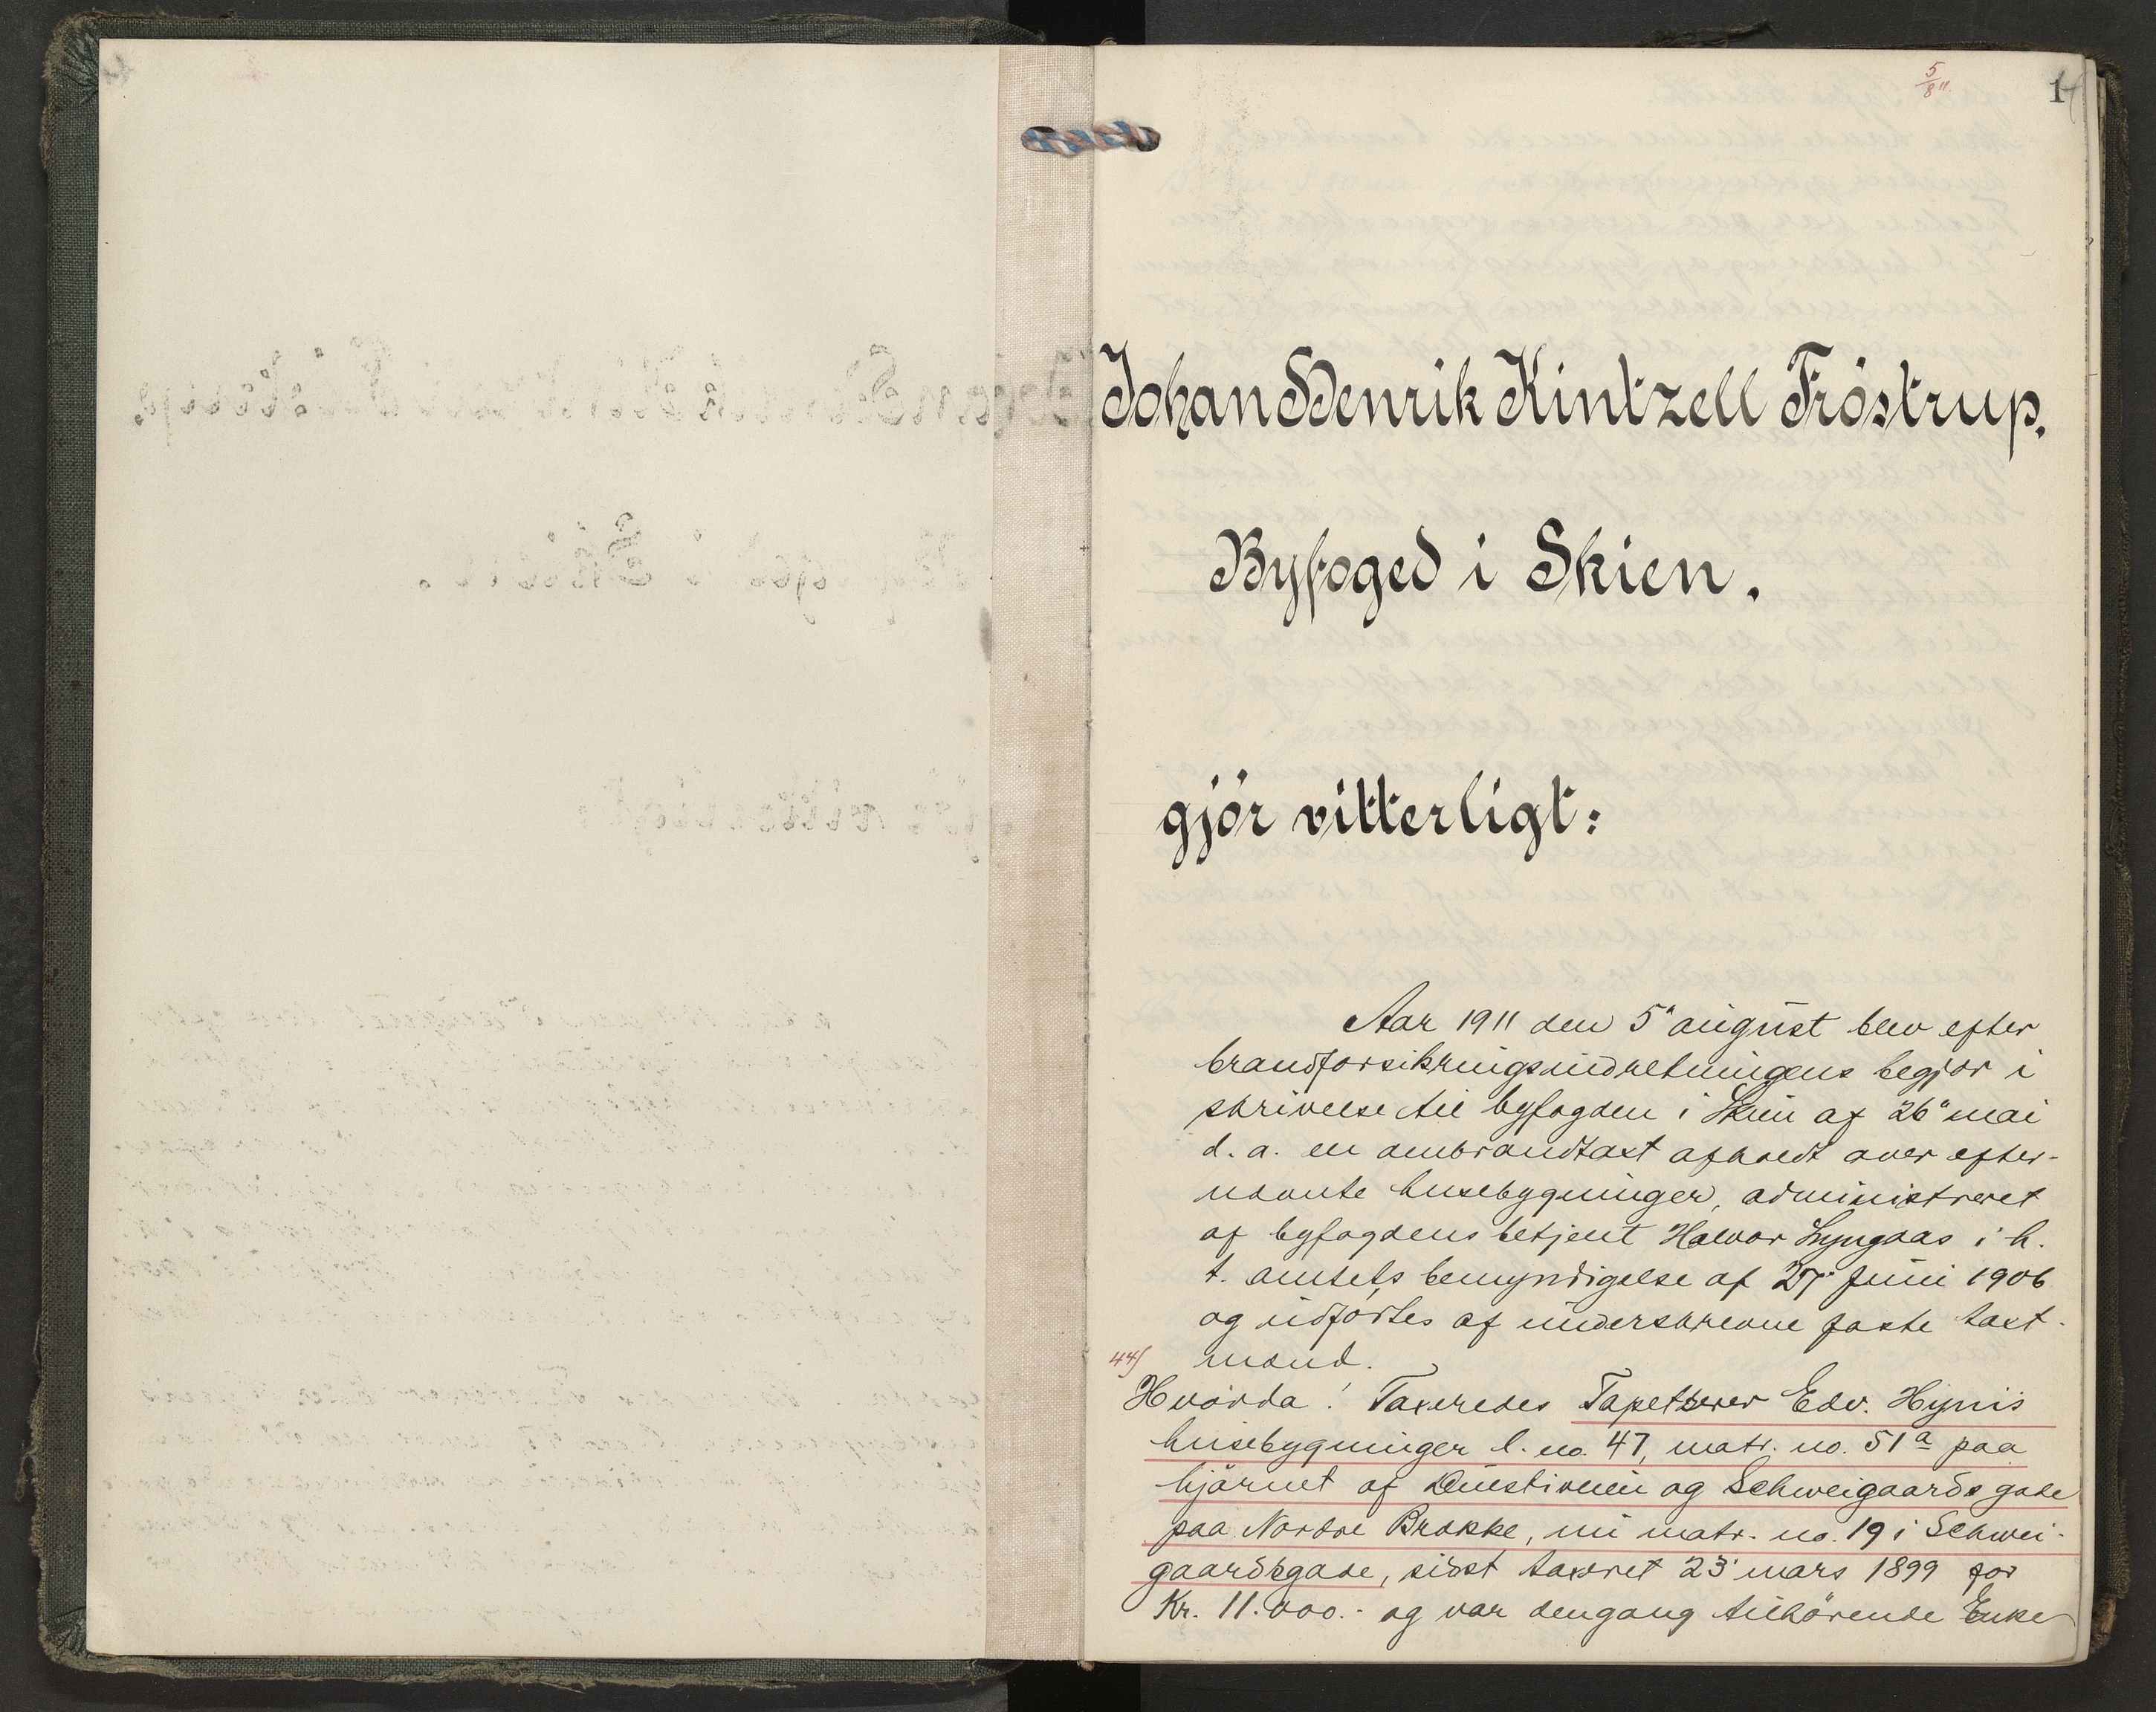 5/8 11.
1
Johan Henrik Kintzell Fröstrup.
Byfoged i Skien.
gjör vitterligt:
Aar 1911 den 5' august blev efter
brandforsikringsindretningens begjær i
skrivelse til byfogden i Skien af 26' mai
d. a. en ombrandtaxt afholdt over efter-
nævnte husebygninger, administreret
af byfogdens betjent Halvor Lyngaas i h.
t. amtets bemyndigelse af 27' juni 1906
og udførtes af underskrevne faste taxt-
44) mænd.
Hvorda! Taxeredes Tapetserer Edv. Hynis
husebygninger l. no. 47, matr. no. 51a paa
hjörnet af og Schweigaards gade
paa Nordre Brække, nu matr. no. 19 i Schwei-
gaardsgade, sidst taxeret 23' mars 1899 for
Kr. 11.000.- og var dengang tilhörende Enke